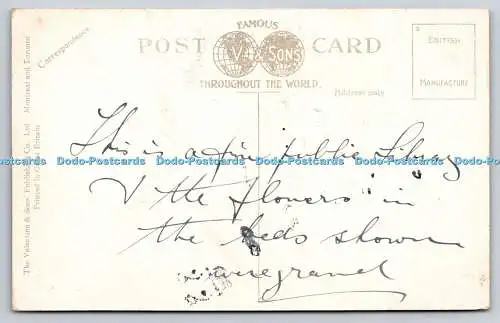 FAMOUS
POST CARD
V. & SONS
THROUGHOUT THE WORLD.
Correspondence
Address only
BRITISH
MANUFACTURE
The Valentine & Sons' Publishing Co., Ltd. Montreal and Toronto
Printed in Great Britain
This is a fine public library
& the flowers in
the beds shown
were grand
Dodo-Postcards Dodo-Postcards Dodo-Postcards Dodo-Postcards Dodo-Postcards Dodo-Postcards